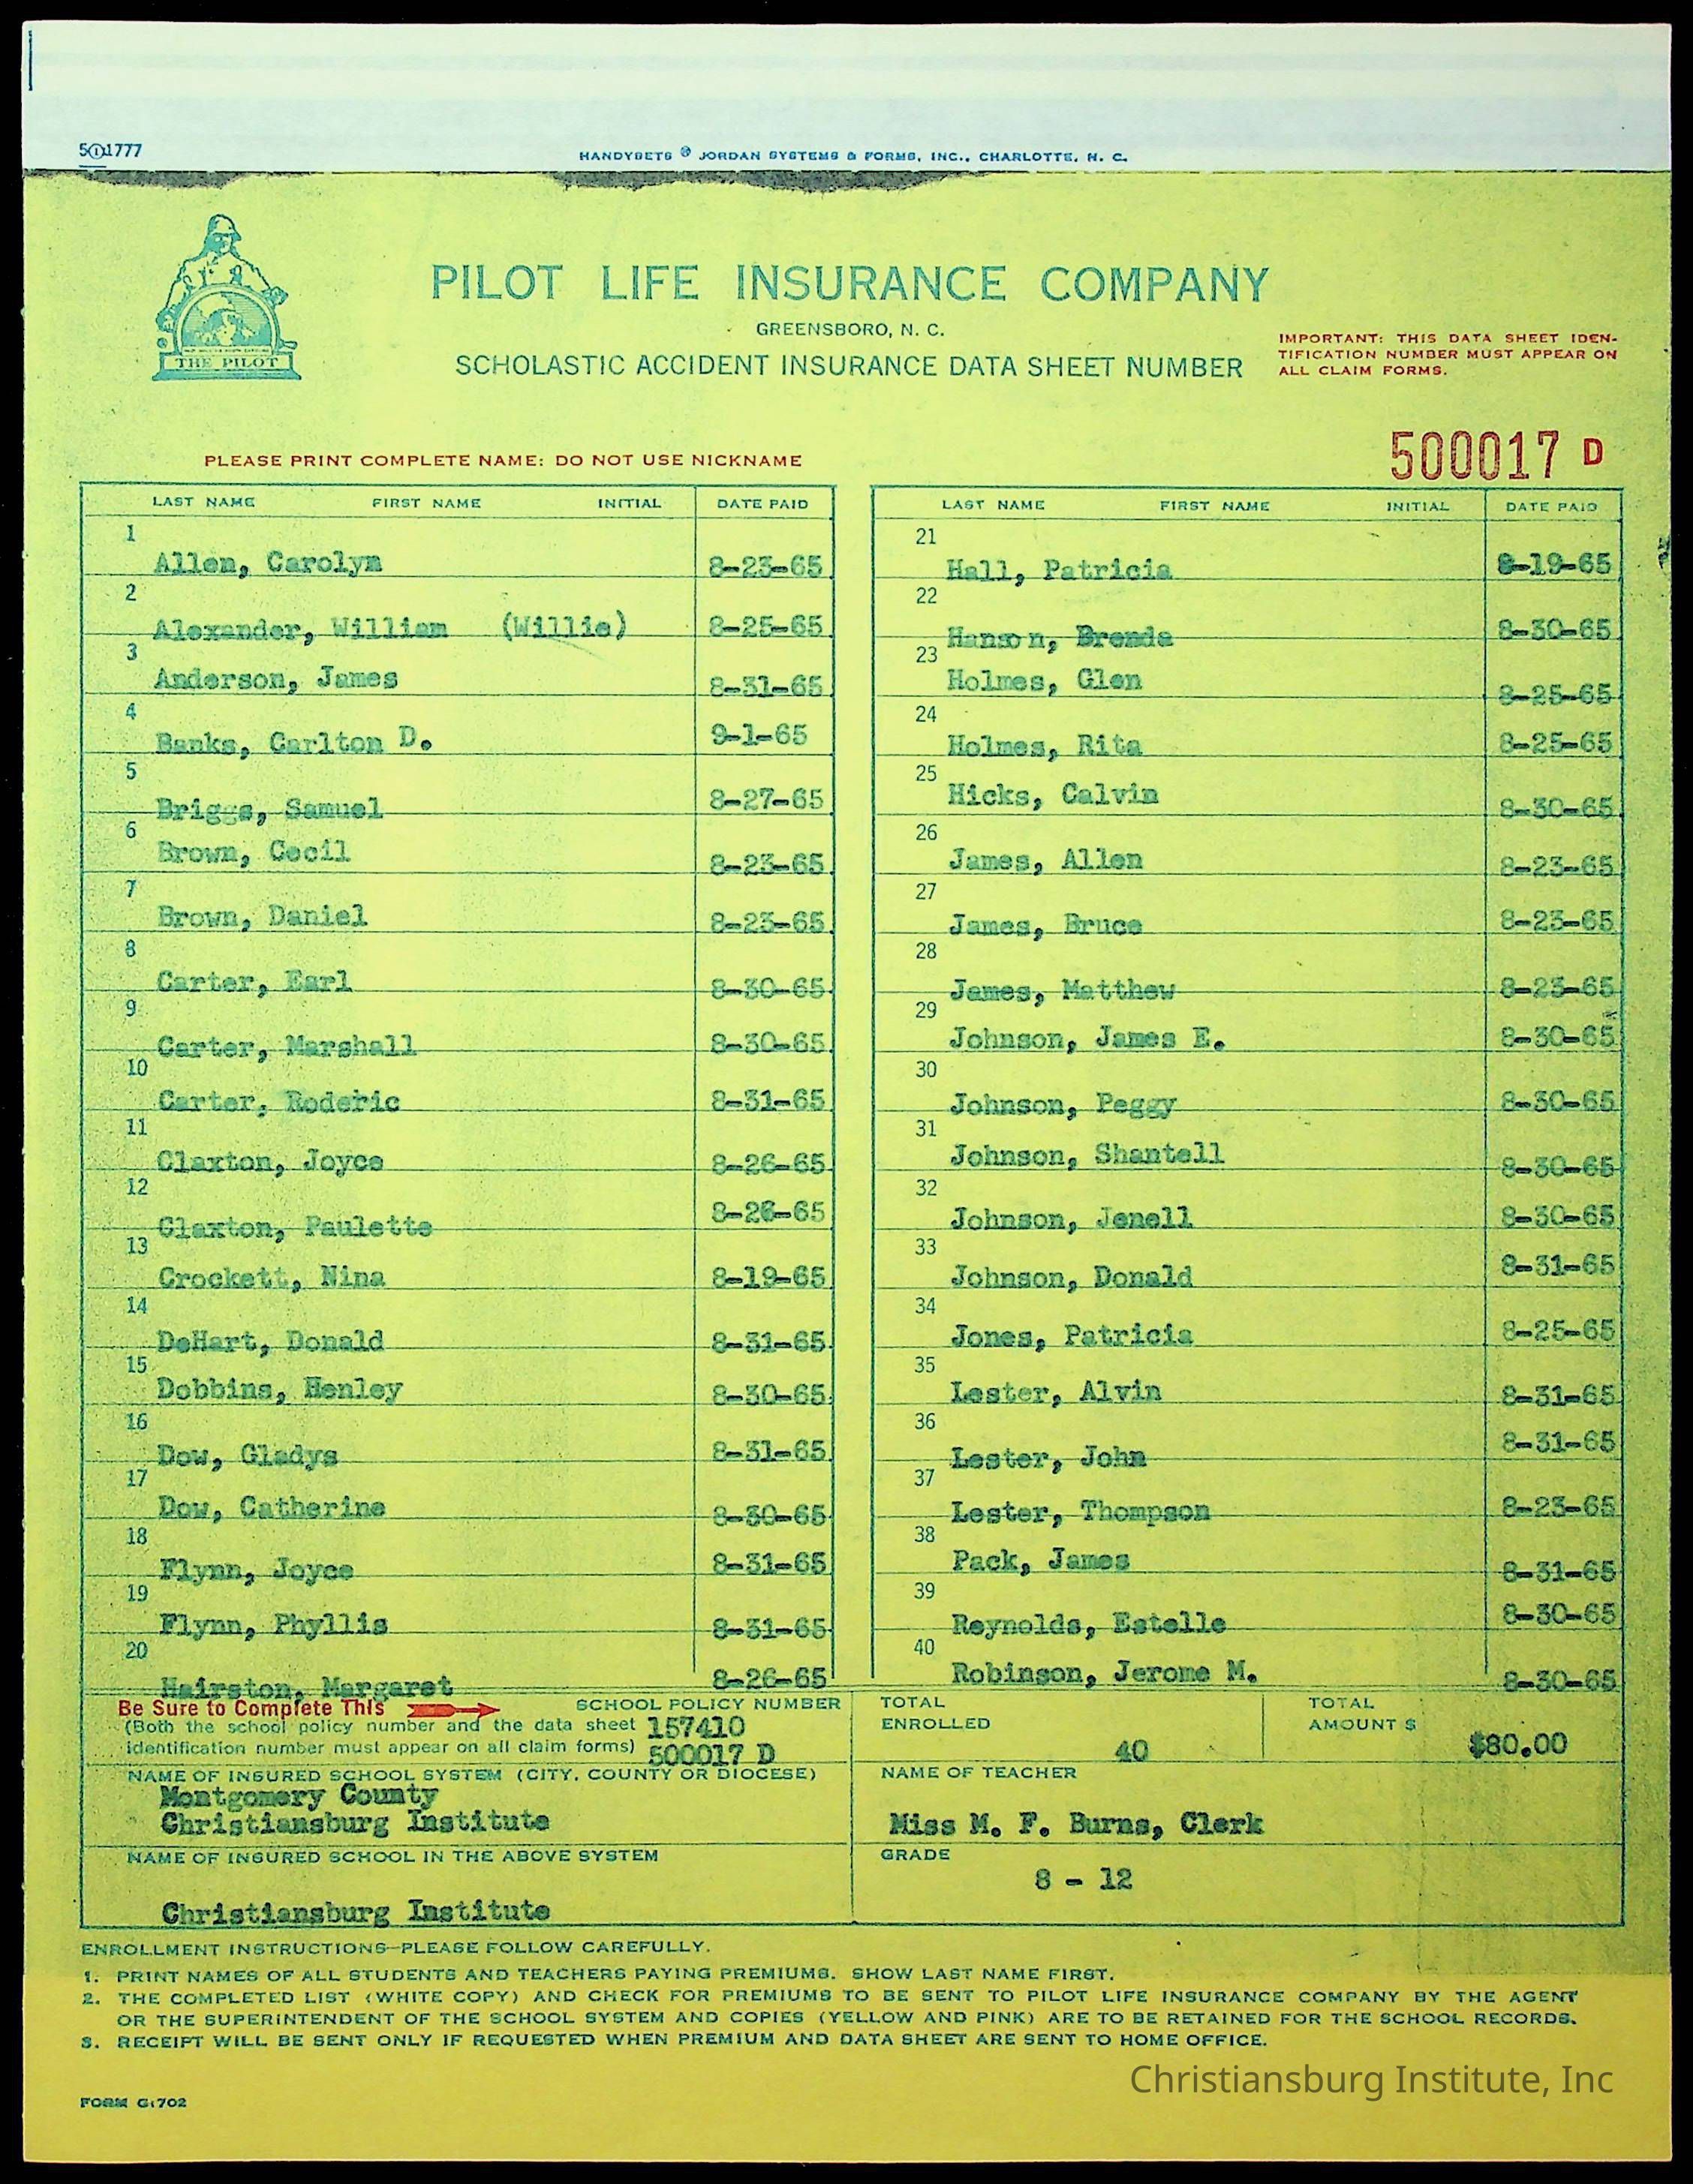 5011777
HANDYSETS ® JORDAN SYSTEMS & FORMS, INC., CHARLOTTE, N. C.
THE PILOT
PILOT LIFE INSURANCE COMPANY
GREENSBORO, N. C.
SCHOLASTIC ACCIDENT INSURANCE DATA SHEET NUMBER
IMPORTANT: THIS DATA SHEET IDEN-
TIFICATION NUMBER MUST APPEAR ON
ALL CLAIM FORMS.
500017 D
PLEASE PRINT COMPLETE NAME: DO NOT USE NICKNAME
LAST NAME FIRST NAME INITIAL DATE PAID
1 Allen, Carolyn 8-23-65
2 Alexander, William (Willie) 8-25-65
3 Anderson, James 8-31-65
4 Banks, Carlton D. 9-1-65
5 Briggs, Samuel 8-27-65
6 Brown, Cecil 8-23-65
7 Brown, Daniel 8-23-65
8 Carter, Earl 8-30-65
9 Carter, Marshall 8-30-65
10 Carter, Roderic 8-31-65
11 Claxton, Joyce 8-26-65
12 Claxton, Paulette 8-26-65
13 Crockett, Nina 8-19-65
14 DeHart, Donald 8-31-65
15 Dobbins, Henley 8-30-65
16 Dow, Gladys 8-31-65
17 Dow, Catherine 8-30-65
18 Flynn, Joyce 8-31-65
19 Flynn, Phyllis 8-31-65
20 Hairston, Margaret 8-26-65
LAST NAME FIRST NAME INITIAL DATE PAID
21 Hall, Patricia 8-19-65
22 Hanson, Brenda 8-30-65
23 Holmes, Glen 8-25-65
24 Holmes, Rita 8-25-65
25 Hicks, Calvin 8-30-65
26 James, Allen 8-23-65
27 James, Bruce 8-23-65
28 James, Matthew 8-23-65
29 Johnson, James E. 8-30-65
30 Johnson, Peggy 8-30-65
31 Johnson, Shantell 8-30-65
32 Johnson, Jenell 8-30-65
33 Johnson, Donald 8-31-65
34 Jones, Patricia 8-25-65
35 Lester, Alvin 8-31-65
36 Lester, John 8-31-65
37 Lester, Thompson 8-23-65
38 Pack, James 8-31-65
39 Reynolds, Estelle 8-30-65
40 Robinson, Jerome M. 8-30-65
Be Sure to Complete This SCHOOL POLICY NUMBER
(Both the school policy number and the data sheet 157410
identification number must appear on all claim forms) 500017 D
TOTAL
ENROLLED 40
TOTAL
AMOUNT $ $80.00
NAME OF INSURED SCHOOL SYSTEM (CITY, COUNTY OR DIOCESE)
Montgomery County
Christiansburg Institute
NAME OF TEACHER
Miss M. F. Burns, Clerk
NAME OF INSURED SCHOOL IN THE ABOVE SYSTEM
Christiansburg Institute
GRADE
8 - 12
ENROLLMENT INSTRUCTIONS—PLEASE FOLLOW CAREFULLY.
1. PRINT NAMES OF ALL STUDENTS AND TEACHERS PAYING PREMIUMS. SHOW LAST NAME FIRST.
2. THE COMPLETED LIST (WHITE COPY) AND CHECK FOR PREMIUMS TO BE SENT TO PILOT LIFE INSURANCE COMPANY BY THE AGENT
OR THE SUPERINTENDENT OF THE SCHOOL SYSTEM AND COPIES (YELLOW AND PINK) ARE TO BE RETAINED FOR THE SCHOOL RECORDS.
3. RECEIPT WILL BE SENT ONLY IF REQUESTED WHEN PREMIUM AND DATA SHEET ARE SENT TO HOME OFFICE.
Christiansburg Institute, Inc
FORM G-702